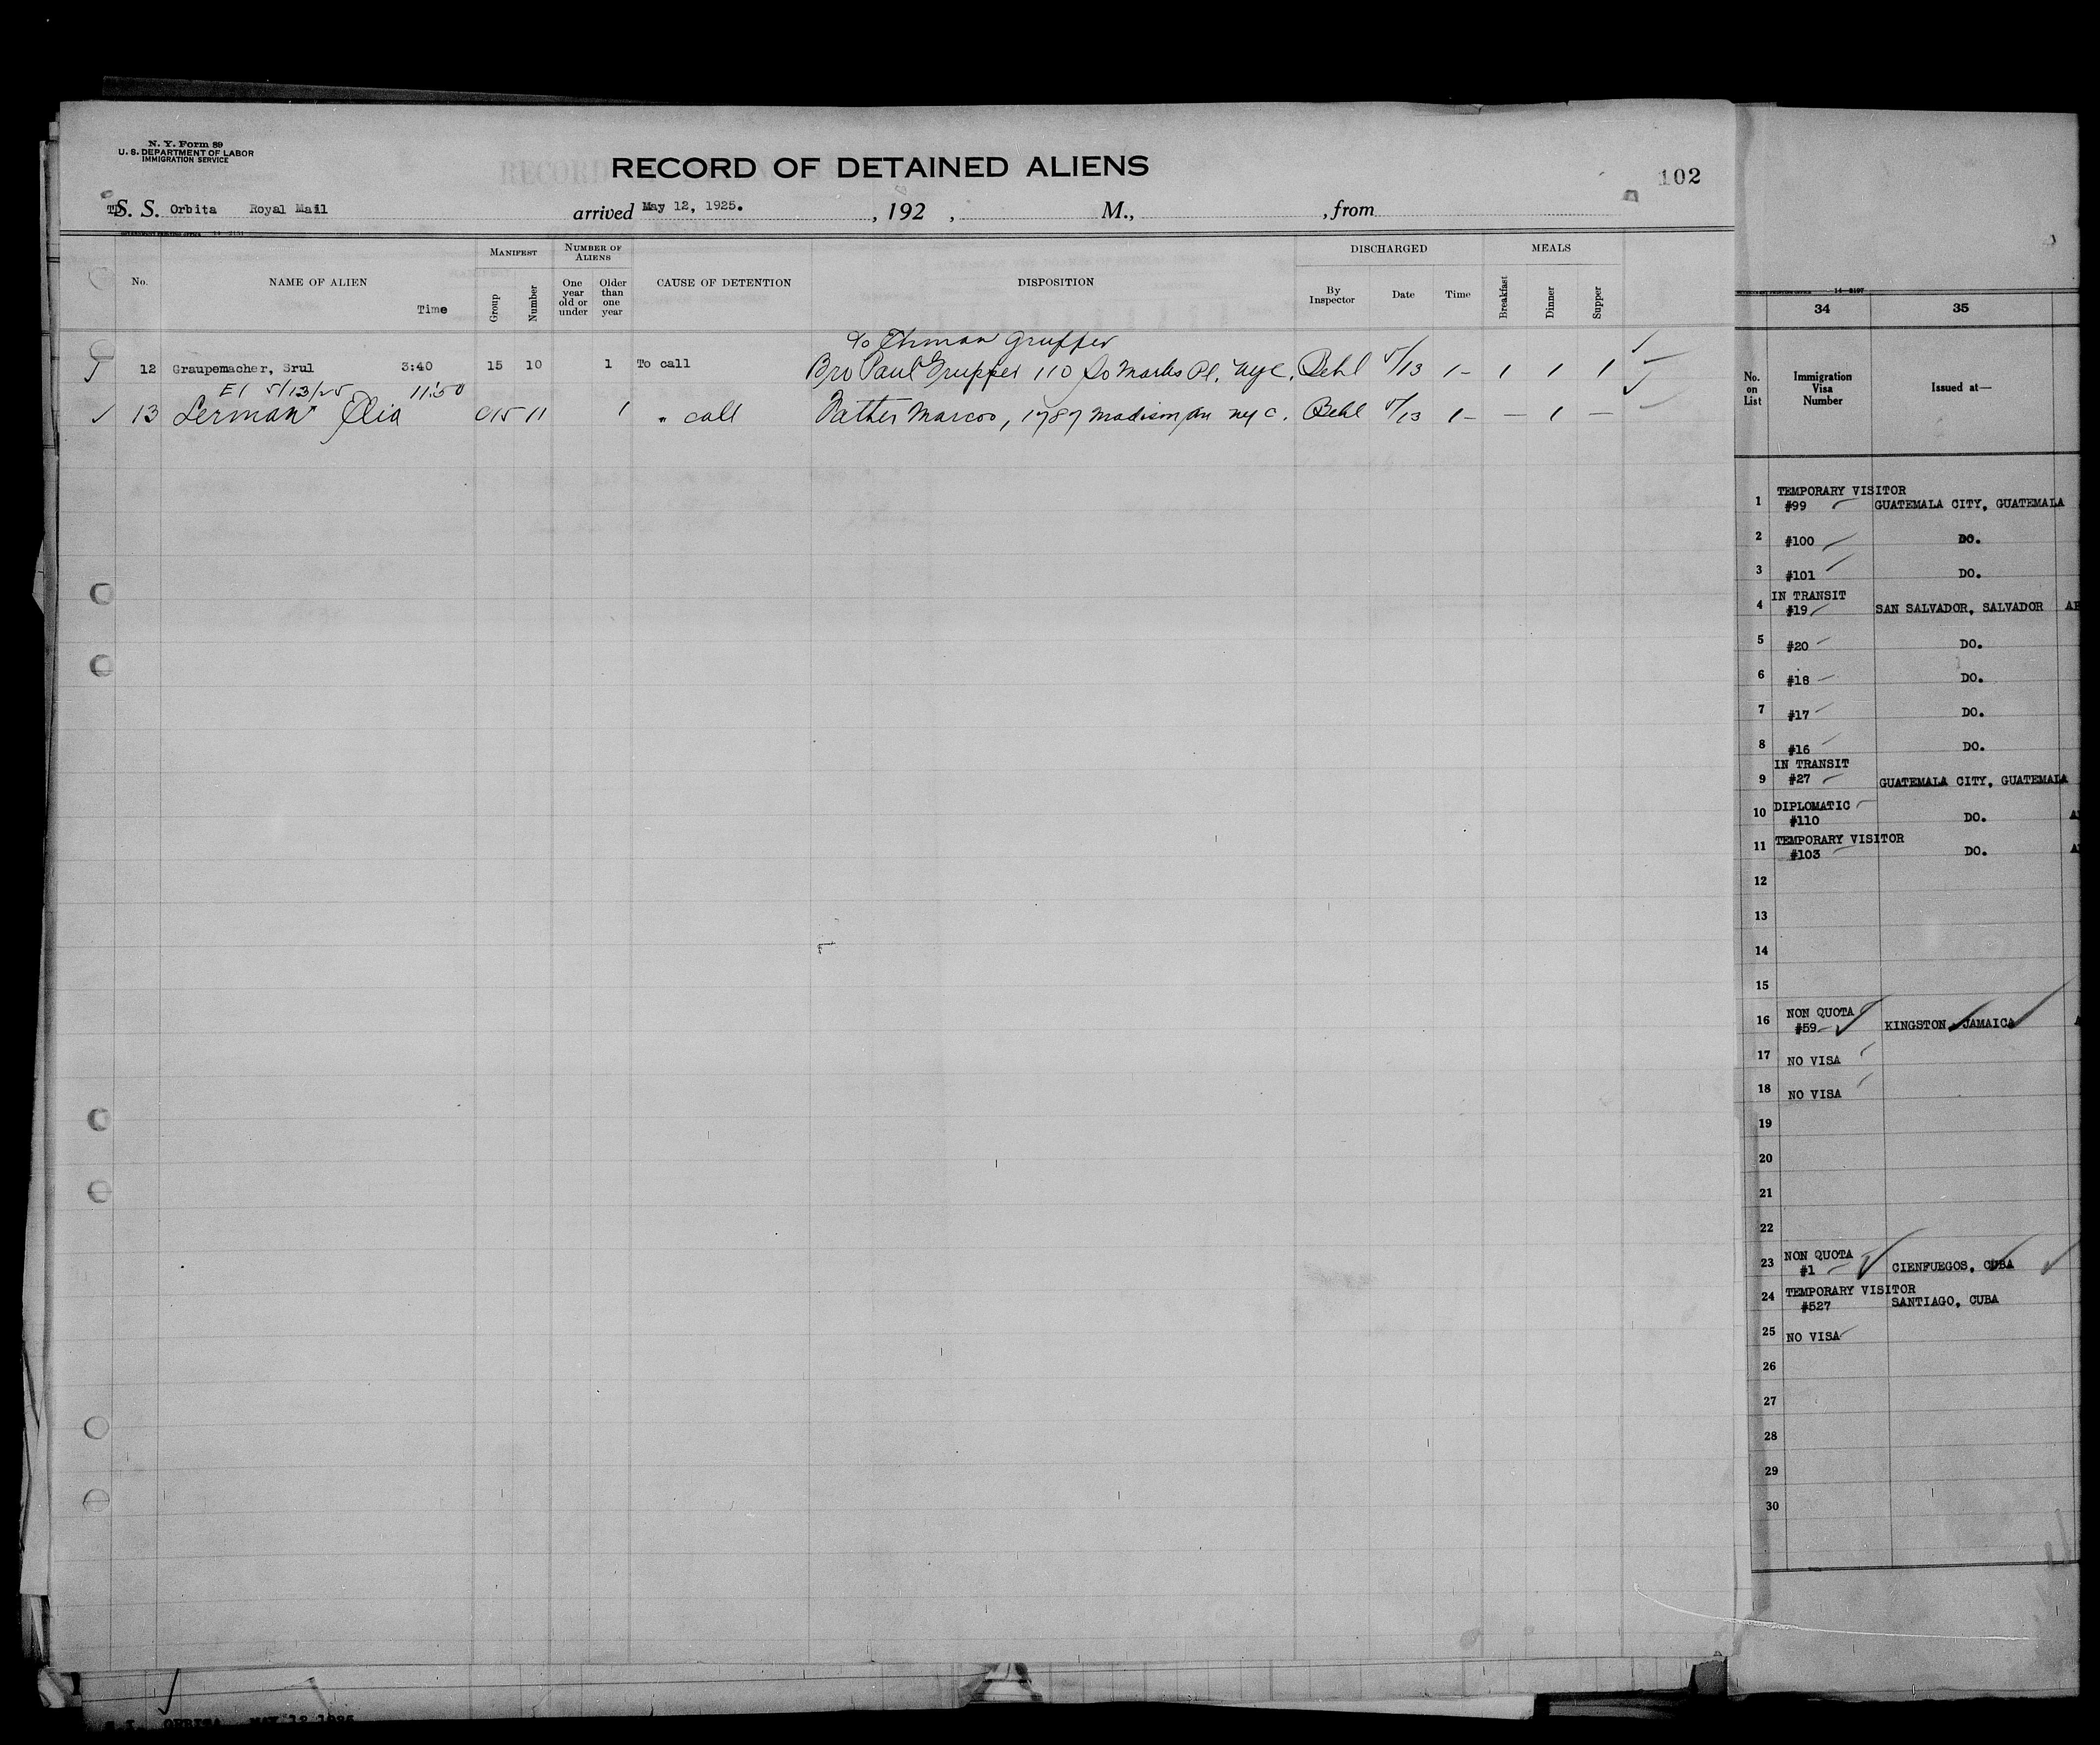 N. Y. Form 89
U. S. DEPARTMENT OF LABOR
IMMIGRATION SERVICE
RECORD OF DETAINED ALIENS
102
S. S. Orbita Royal Mail arrived May 12, 1925. , 192 , M., , from
No. NAME OF ALIEN Time
MANIFEST Group Number
NUMBER OF ALIENS One year old or under Older than one year
CAUSE OF DETENTION
DISPOSITION
DISCHARGED By Inspector Date Time
MEALS Breakfast Dinner Supper
12 Graupemacher, Srul 3:40 15 10 1 To call Bro Paul Grupper 110 So Marks Pl. NYC. Behl 5/13 1- 1 1 1
EI 5/13/25 11:50
13 Lerman Elia 15 11 1 " call Father Marcos, 1787 Madison Av NYC. Behl 5/13 1- — 1 —
34 35
No. on List Immigration Visa Number Issued at—
TEMPORARY VISITOR
1 #99 GUATEMALA CITY, GUATEMALA
2 #100 DO.
3 #101 DO.
IN TRANSIT
4 #19 SAN SALVADOR, SALVADOR
5 #20 DO.
6 #18 DO.
7 #17 DO.
8 #16 DO.
IN TRANSIT
9 #27 GUATEMALA CITY, GUATEMALA
DIPLOMATIC
10 #110 DO.
TEMPORARY VISITOR
11 #103 DO.
12
13
14
15
NON QUOTA
16 #59 KINGSTON, JAMAICA
17 NO VISA
18 NO VISA
19
20
21
22
NON QUOTA
23 #1 CIENFUEGOS, CUBA
TEMPORARY VISITOR
24 #527 SANTIAGO, CUBA
25 NO VISA
26
27
28
29
30
ORBITA MAY 12 1925